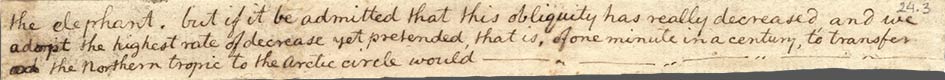 24.3
the elephant. but if it be admitted that this obliquity has really decreased, and we
adopt the highest rate of decrease yet pretended, that is, of one minute in a century, to transfer
the Northern tropic to the Arctic circle would